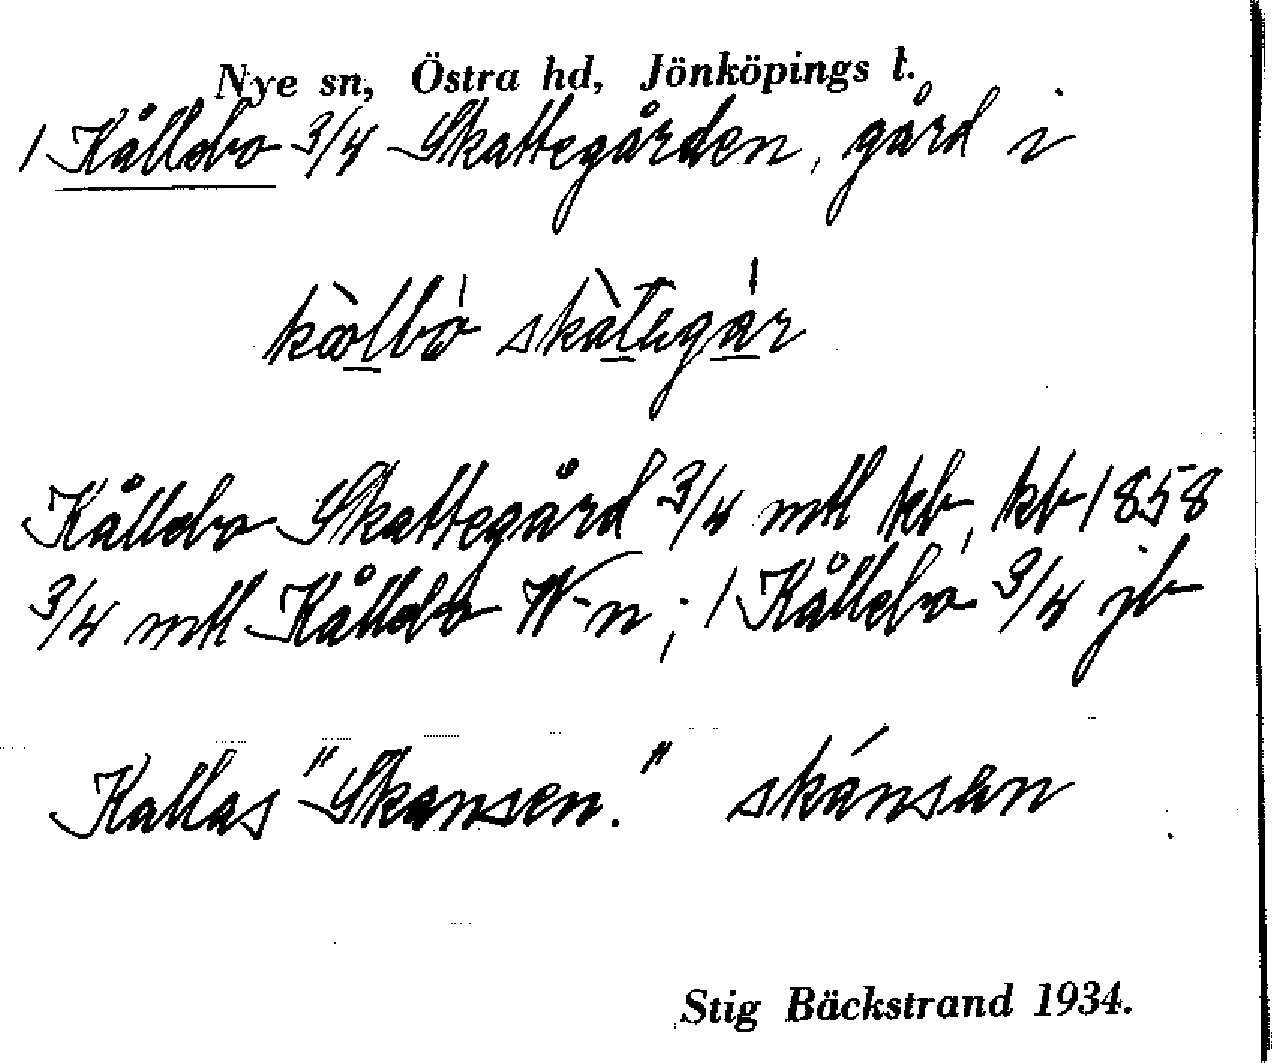 Nye sn, Östra hd, Jönköpings l.
1 Kållebo 3/4 Skattegården, gård i
Kållebo Skattegård 3/4 mtl kb, kb 1858
3/4 mtl Kållebo W-n; 1 Kållebo 3/4 jb
Kallas "Skansen." skánsen
Stig Bäckstrand 1934.